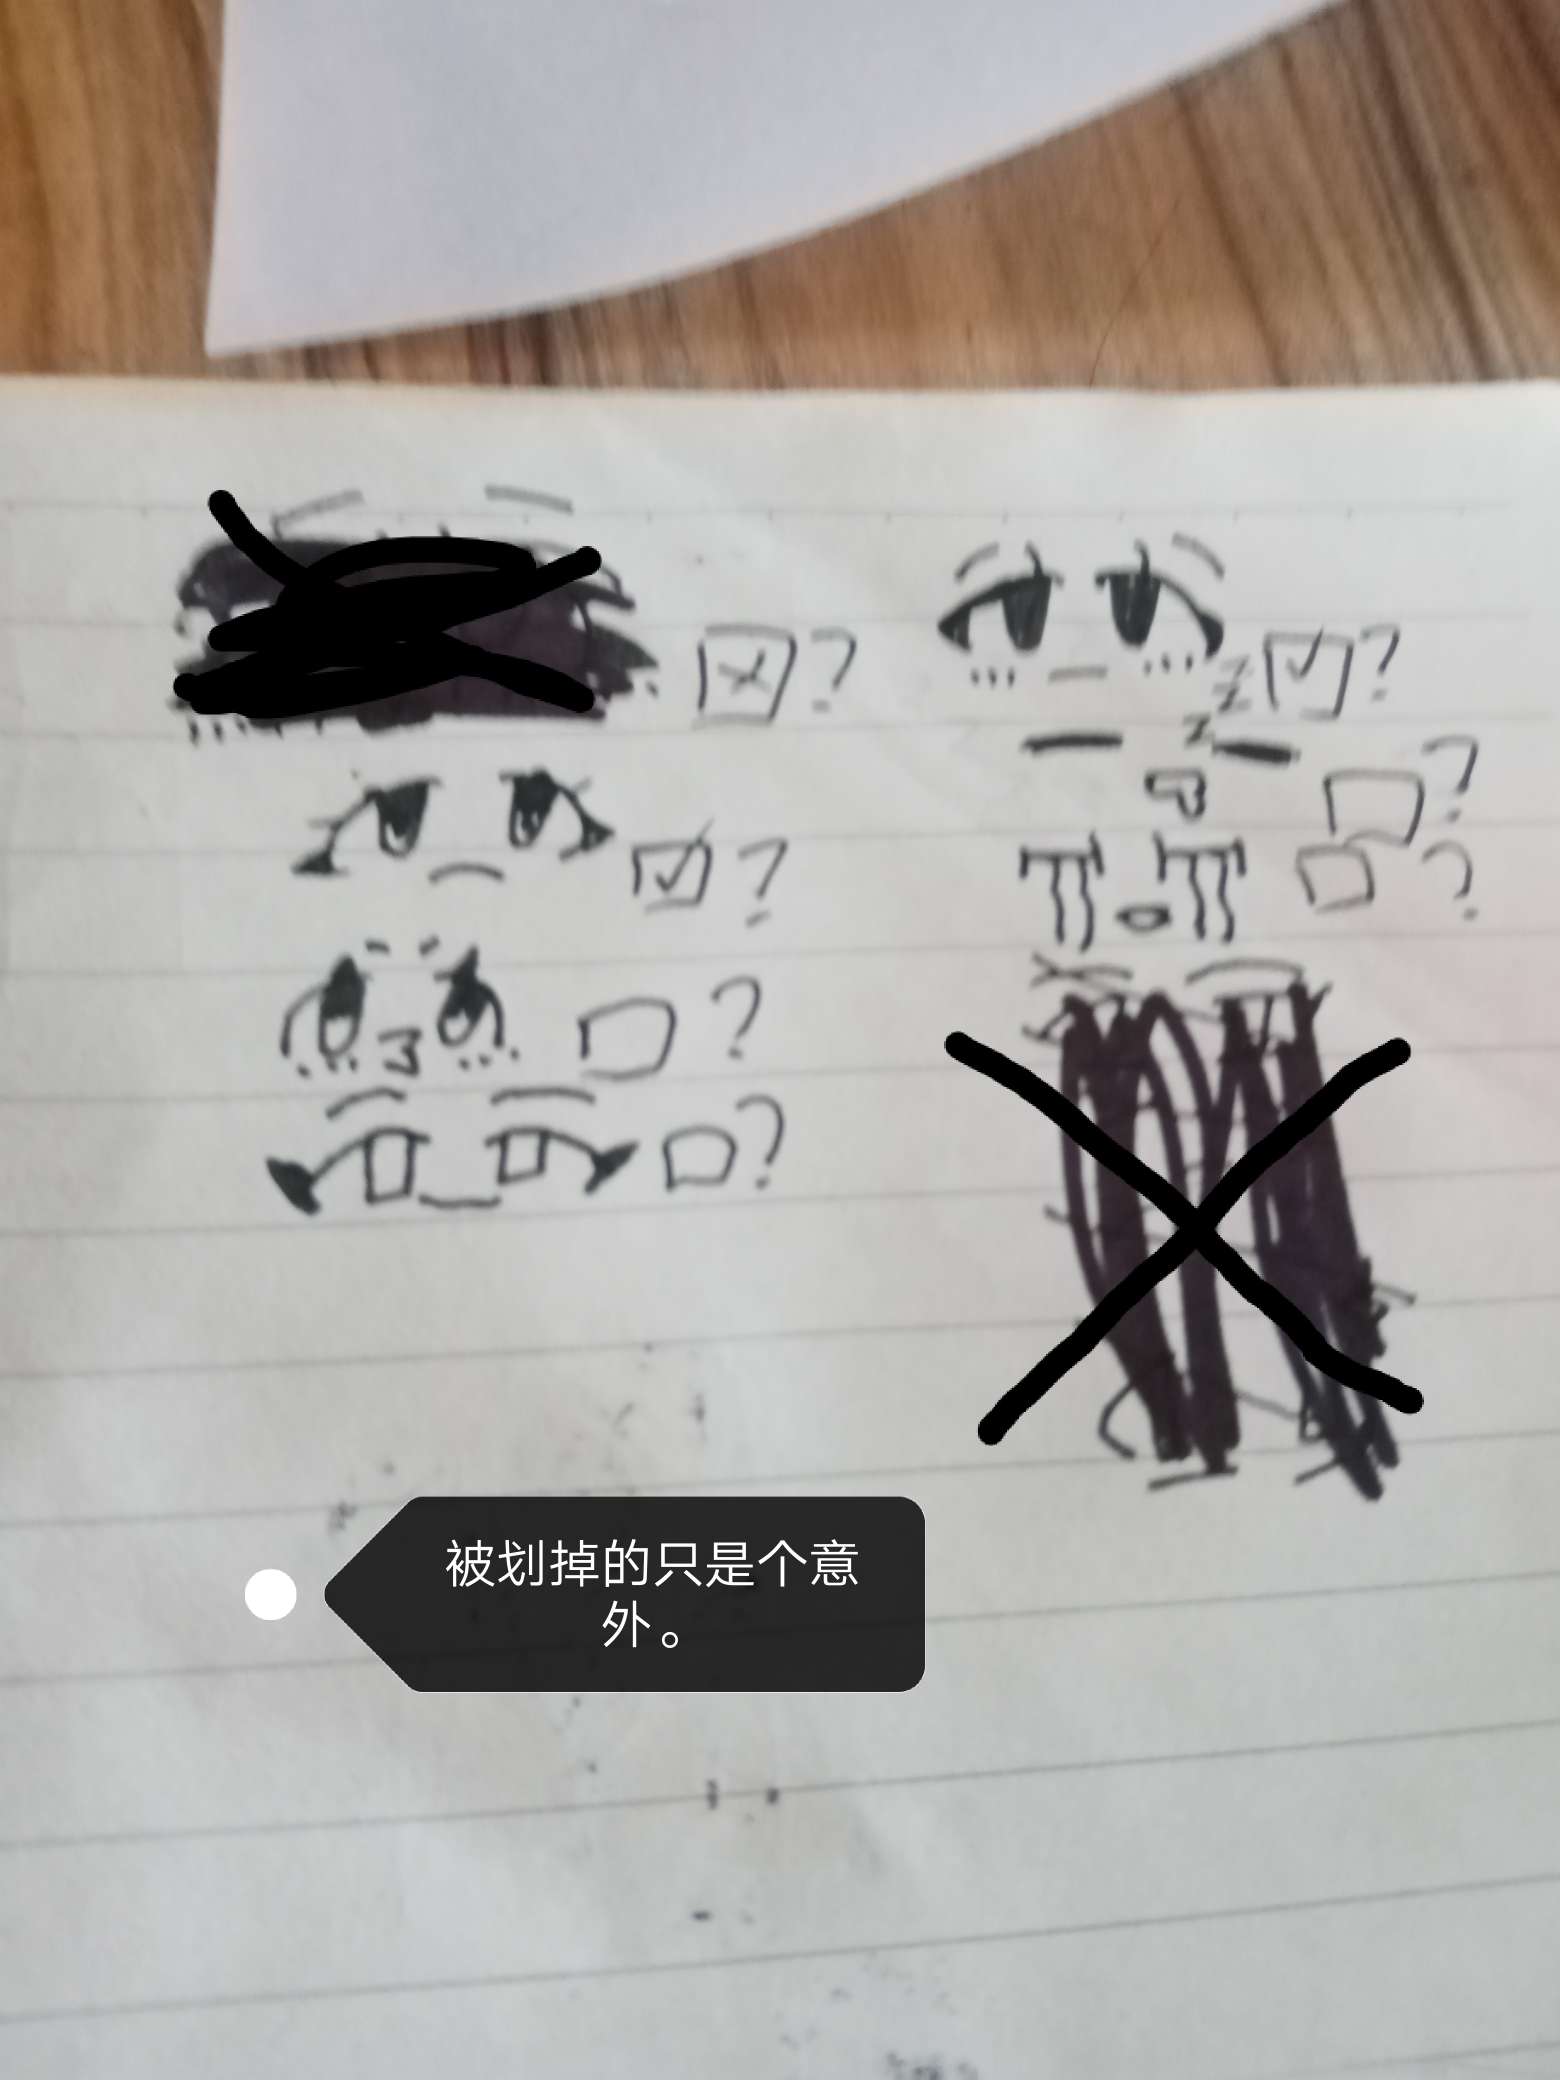 ?
?
z
z
z
?
?
?
?
?
被划掉的只是个意
外。